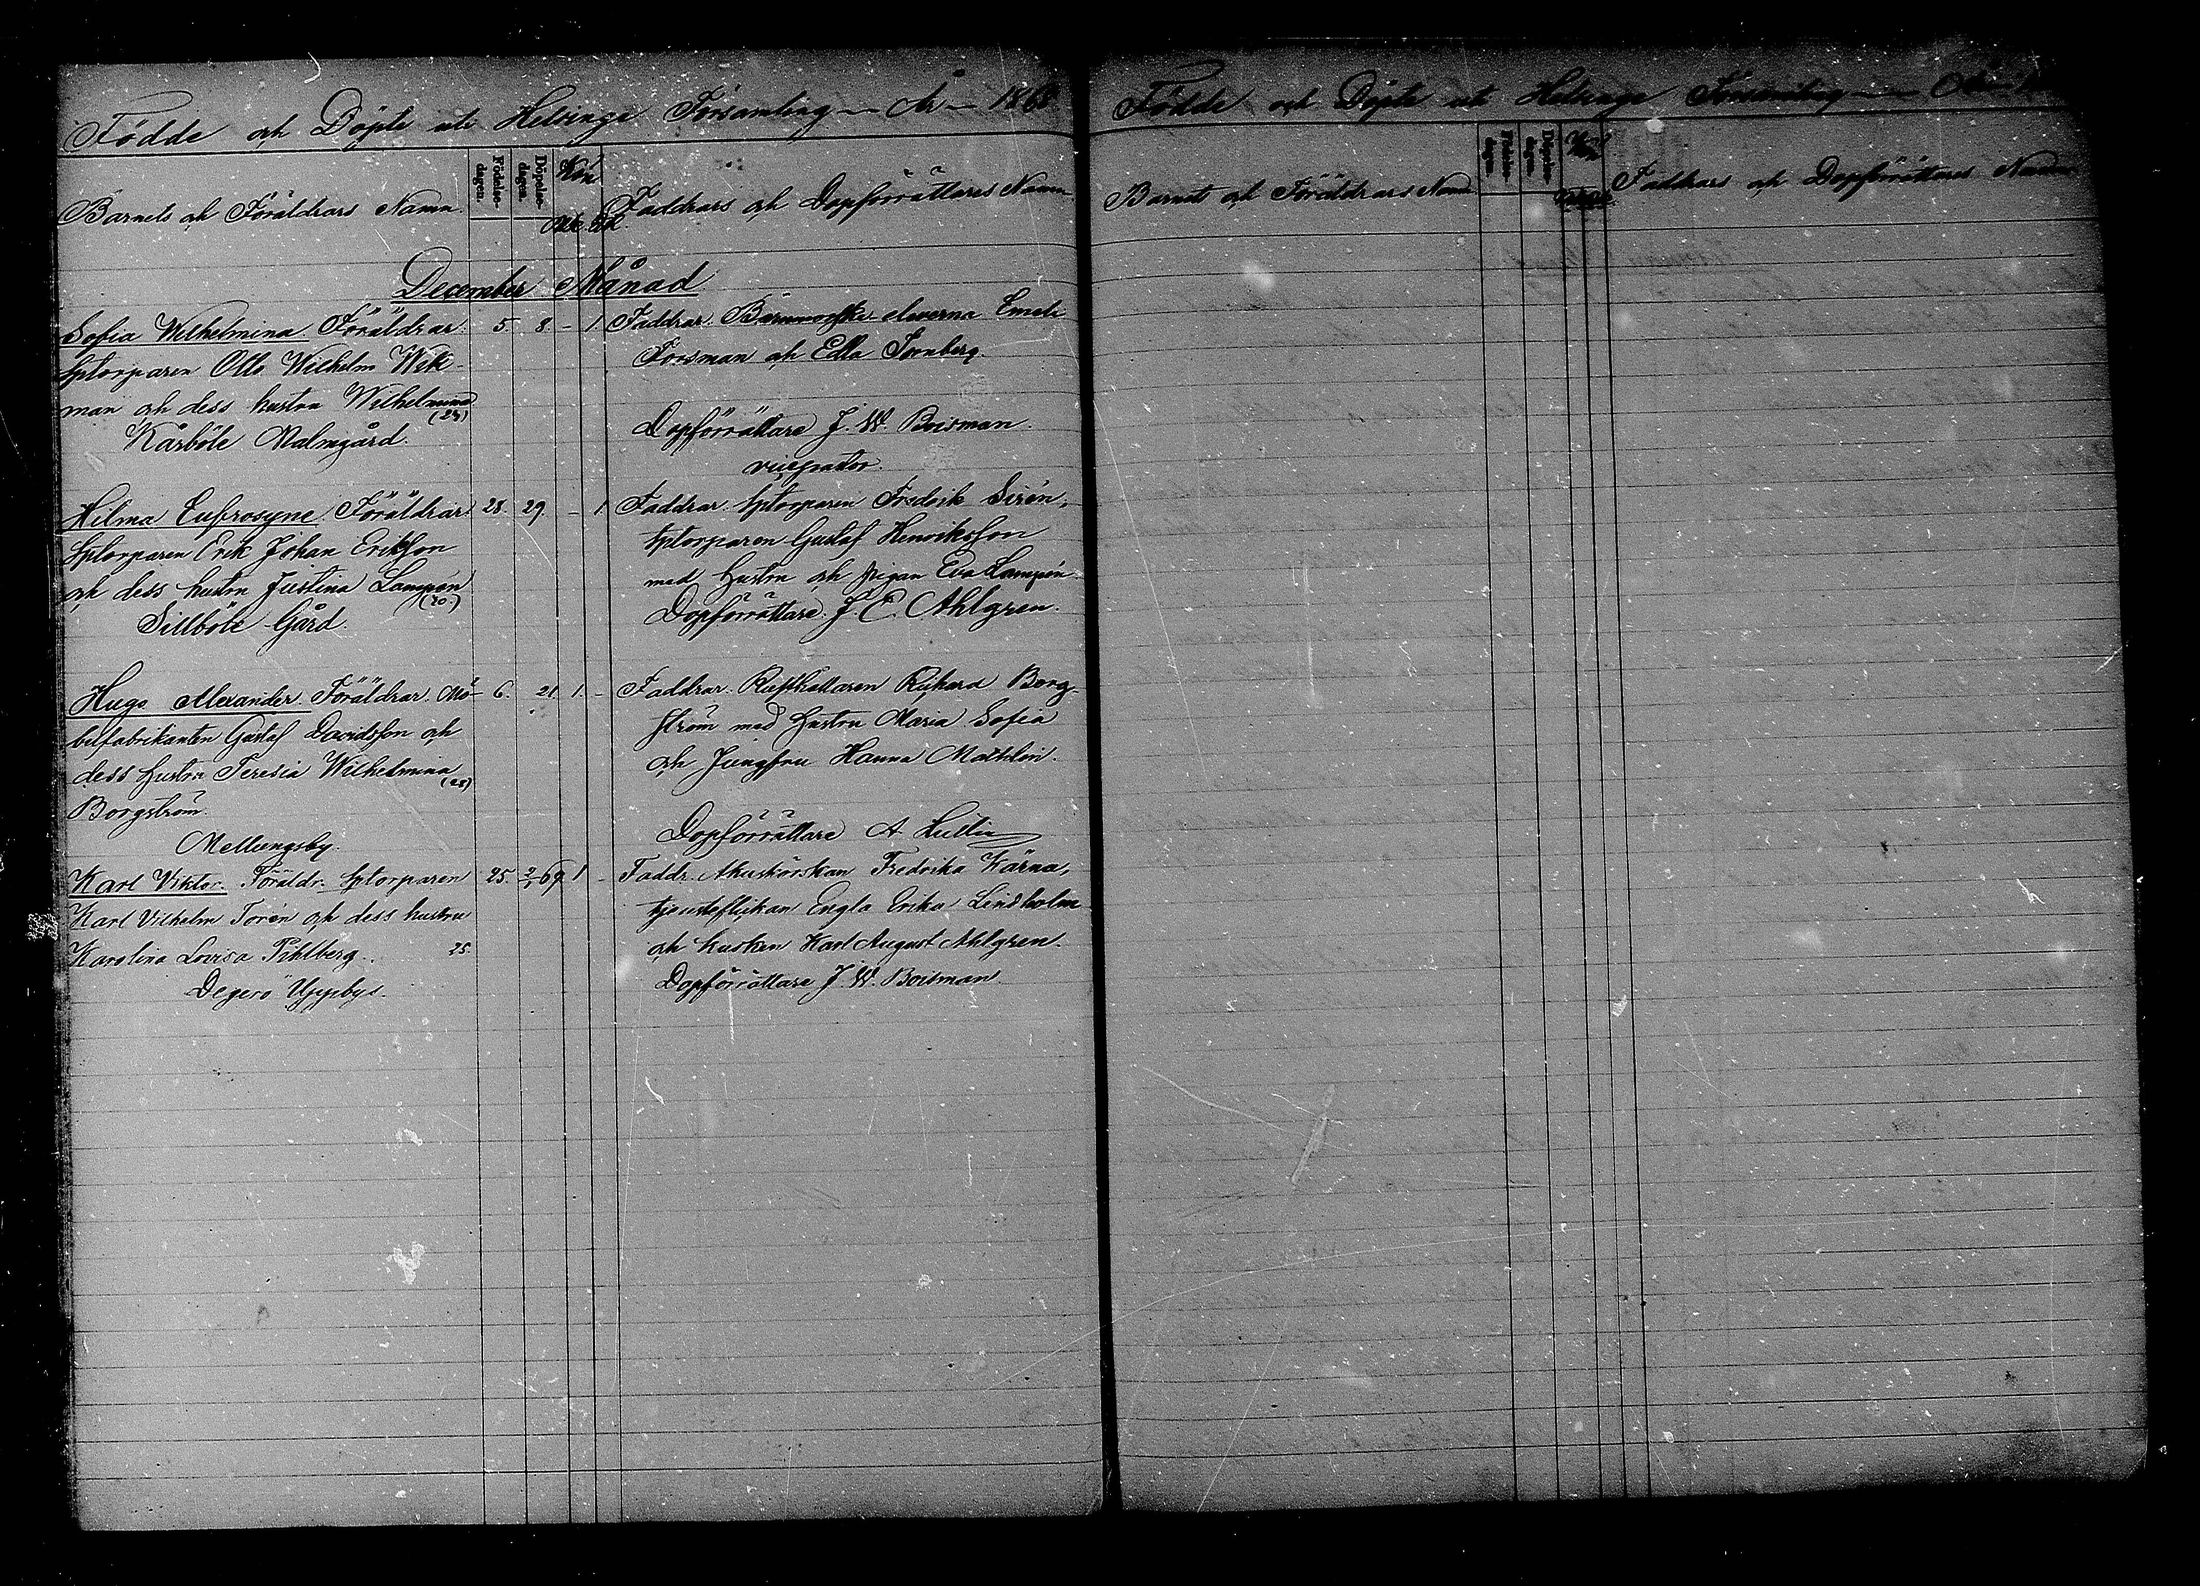 Födde och Döpte uti Helsinge Församling — År — 1868
Barnets och Föräldrars Namn.
Födelse-dagen.
Döpelse-dagen.
Kön
Mk. Qk.
Faddrars och Dopförrättares Namn
December Månad
Sofia Wilhelmina. Föräldrar: 5. 8. - 1 Faddrar. Barnmorske eleverna Emeli
sptorparen Otto Wilhelm Wik- Forsman och Edla Tornberg.
man och dess hustru Wilhelmina
(28) Dopförrättare J. W. Boisman.
Kårböle Malmgård. vicepastor.
Hilma Eufrosyne. Föräldrar 28. 29. - 1 Faddrar. sptorparen Fredrik Sirén,
sptorparen Erik Johan Eriksson sptorparen Gustaf Henriksson
och dess hustru Justina Lampén med hustru och pigan Eva Lampén.
(20.) Dopförrättare. J. E. Ahlgren.
Sillböle Gård.
Hugo Alexander. Föräldrar. Mö- 6. 21. 1. - Faddrar. Rusthållaren Rikard Borg-
belfabrikanten Gustaf Davidsson och ström med hustru Maria Sofia
dess hustru Teresia Wilhelmina och Jungfru Hanna
(28)
Borgström.
Dopförrättare A.
Mellungsby.
Karl Viktor. Föräldr. sptorparen 25. 2/1 69 1 - Faddr. Fredrika Kärna,
Karl Vilhelm Torén och dess hustru tjensteflickan Engla Erika Lindholm
Karolina Lovisa Pihlberg.. 25. och kusken Karl August Ahlgren.
Degerö Uppbys. Dopförrättare J. W. Boisman.
Födde och Döpte uti Helsinge Församling
Barnets och Föräldrars Namn
Födelse-dagen.
Döpelse-dagen.
Kön
Faddrars och Dopförrättares Namn